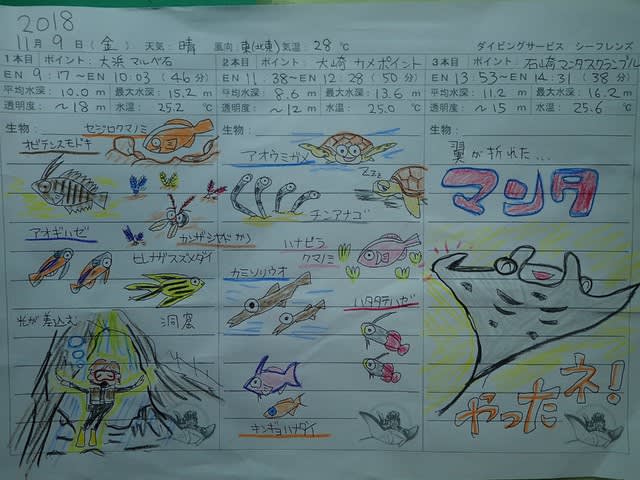 2018
11月 9日 (金) 天気: 晴 風向: 東(北東) 気温: 28 ℃ ダイビングサービス シーフレンズ
1本目 ポイント: 大浜マルヤ石
EN 9:17~EN 10:03 (46分)
平均水深: 10.0 m 最大水深: 15.2 m
透明度: ~18 m 水温: 25.2 ℃
生物:
セジロクマノミ
オビテンスモドキ
アオギハゼ
カンザシヤドカリ
ヒレナガスズメダイ
光が差込む 洞窟
2本目 ポイント: 大崎 カメポイント
EN 11:38~EN 12:28 (50分)
平均水深: 8.6 m 最大水深: 13.6 m
透明度: ~12 m 水温: 25.0 ℃
生物:
アオウミガメ
ZZZ
チンアナゴ
ハナビラ
クマノミ
カミソリウオ
ハタタテハゼ
キンギョハナダイ
3本目 ポイント: 石崎マンタスクランブル
EN 13:53~EN 14:31 (38分)
平均水深: 11.2 m 最大水深: 16.2 m
透明度: ~15 m 水温: 25.6 ℃
生物:
翼が折れた...
マンタ
やったネ!